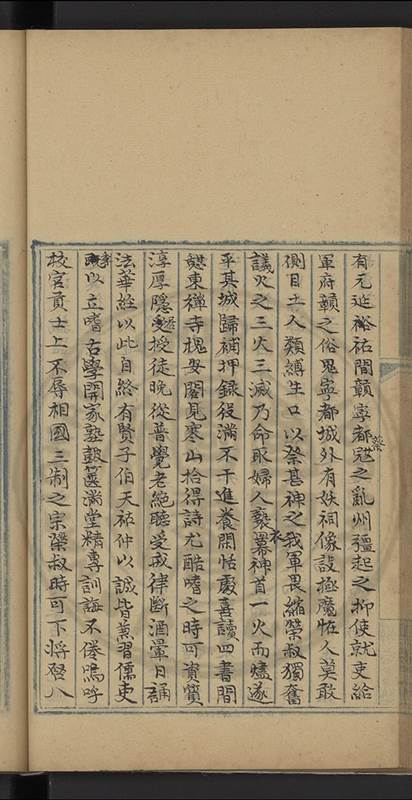 有元延祐間贛寧都冦之亂州彊起之抑使就吏給
軍府贛之俗鬼寧都城外有妖祠像設極魔怪人莫敢
側目土人類縛生口以祭甚神之我軍畏縮榮叔獨奮
議火之三火三滅乃命取婦人褻衣冪神首一火而燼遂
平其城歸補押録役滿不干進養閑怡慶喜讀四書間
憇東禪寺槐安閣見寒山拾得詩尤酷嗜之時可資質
淳厚隱授徒晚從普覺老絶聽受戒律斷酒暈日誦
法華經以此自終有賢子伯天祐仲以誠皆蕪習儒吏
以立嗜古學開家塾鼓篋滿堂精專訓誨不倦嗚呼
校官貢士上不辱相國三制之宗榮叔時可下將啓八